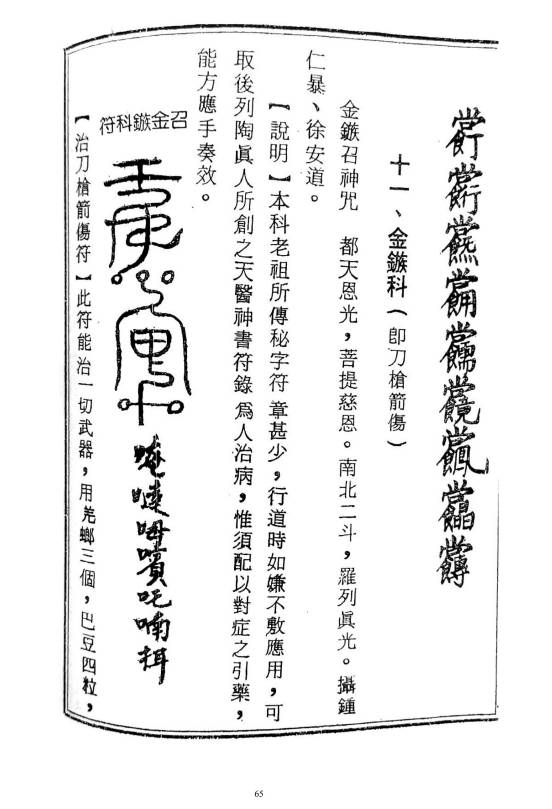 十一、金鏃科（即刀槍箭傷）
金鏃召神咒　都天恩光，菩提慈恩。南北二斗，羅列眞光。攝鍾
仁暴、徐安道。
【說明】本科老祖所傳秘字符 章甚少，行道時如嫌不敷應用，可
取後列陶眞人所創之天醫神書符錄 爲人治病，惟須配以對症之引藥，
能方應手奏效。
召金鏃科符
【治刀槍箭傷符】此符能治一切武器，用羌螂三個，巴豆四粒，
65